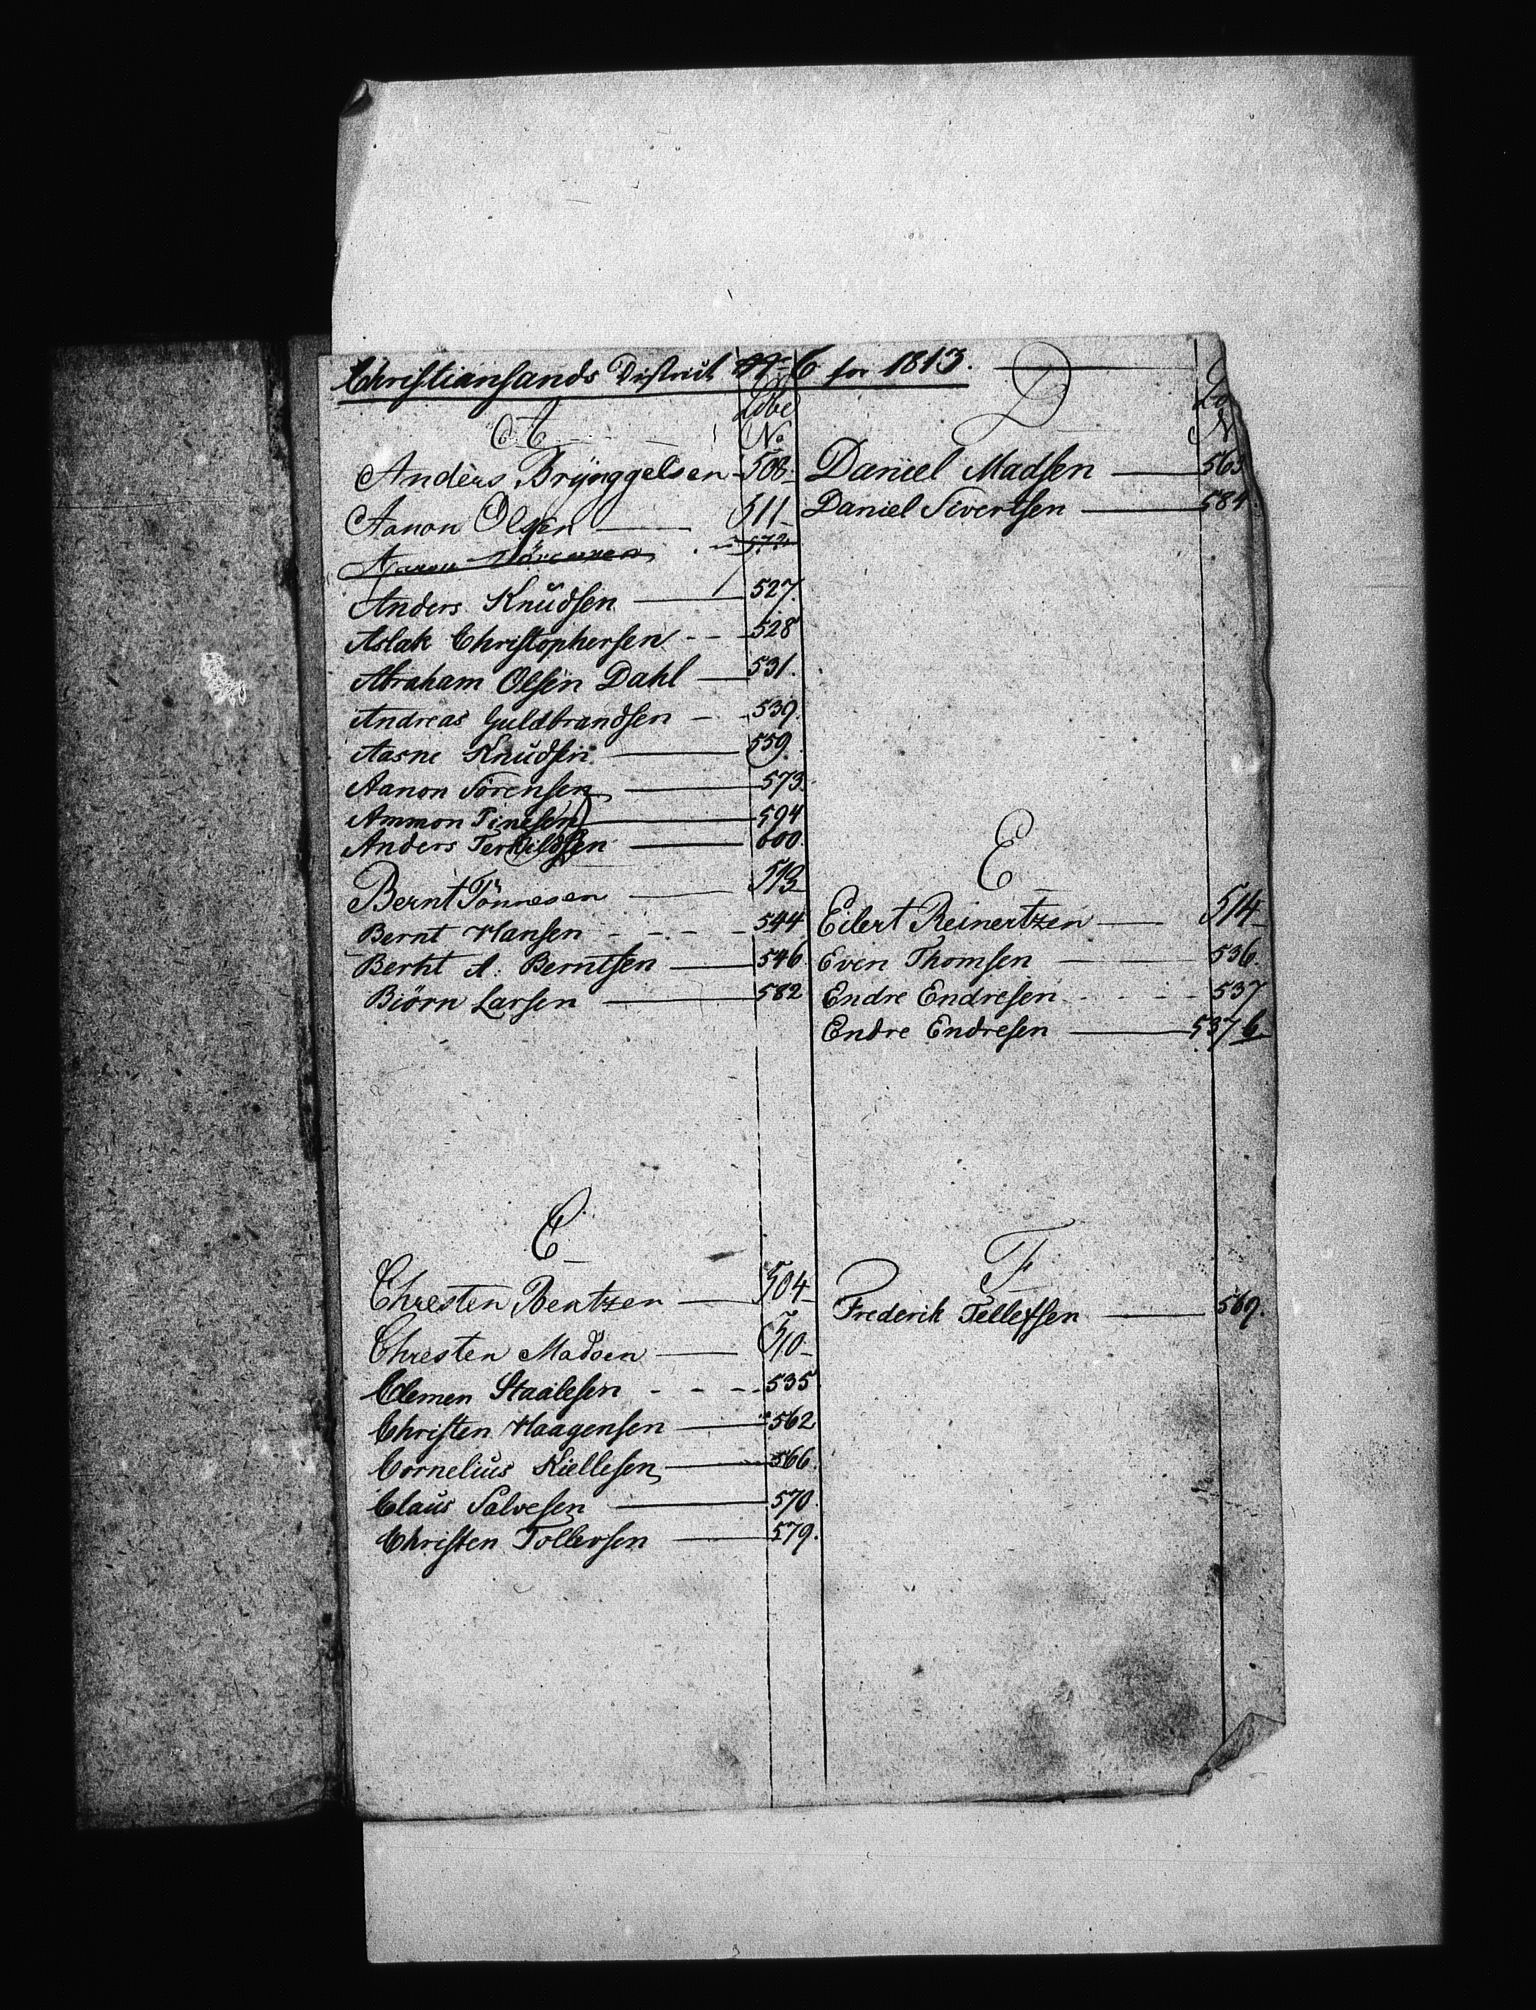 Christiansands District No 6 for 1813.
A
Løbe
No
Anders Brÿnggelsen 508
Aanon Olsen 511
Aanon Sörensen 572
Anders Knudsen 527
Aslak Christophersen 528
Abraham Olsen Dahl 531.
Andreas Guldbrandsen 539.
Aasne Knudsen 559.
Aanon Sörensen 573
Ammon Tinesen 594
Anders Terkildsen 600
Bernt Tönnesen 513
Bernt Hansen 544
Bernt A. Berntsen 546
Biörn Larsen 582
C
Chresten Bentzen 504
Chresten Madsen 510
Clemen Staalesen 535
Christen Haagensen 562
Cornelius Kiellesen 566.
Claus Salvesen 570.
Christen Tollevsen 579.
D
Lø
N
Daniel Madsen 563
Daniel Sivertsen 584
E
Eilert Reinertzen 514
Even Thomsen 536.
Endre Endresen 537
Endre Endresen 537 b
F
Frederik Tellefsen 569.